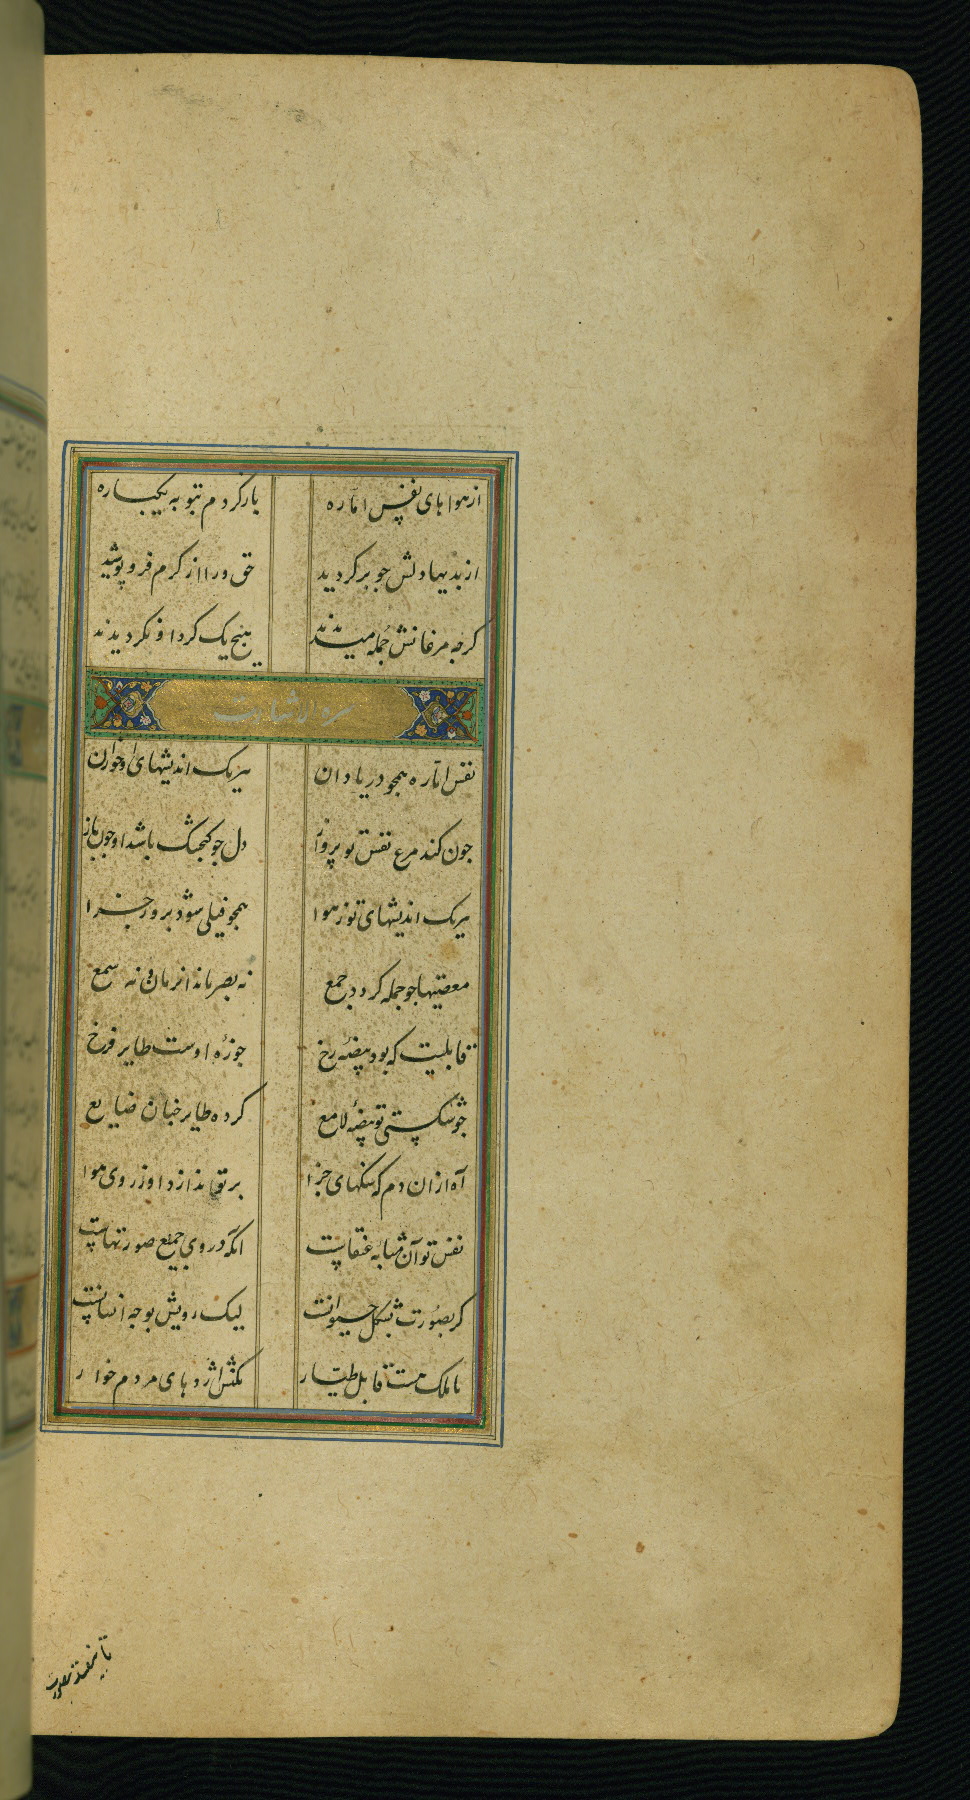 از هوا های نفس اماره باز کردم بتوبه یکباره
از بدیها دلش جو بر کردید حق ورا از کرم فرو پوشید
کرجه مرغانش جمله میشدند هیج یک کرد او نکردیدند
نفس اماره همجو دریا دان یریک اندیشهای او
جون کند مرغ نفس تو پرواز دل جو کنجشک باشد او جون باز
یریک اندیشهای تو ز هوا همجو فیلی شود بروز جزا
معصیتها جو جمله کردد جمع نه بصر ماند انزمان و نه سمع
قابلیت که بود بیضهٔ رخ جوزهٔ اوست طایر فرخ
جو شکستی تو بیضهٔ لامع کرده طایر جنان ضایع
آه ازان دم که سنکهای جزا بر تو اندازد او ز روی هوا
نفس تو آن مشابه عنقاست انکه در وی جمیع صورتهاست
کر بصورت بشکل حیوانست لیک رویش بوجه انسانست
با ملک هست قابل طیار مکنش اژدهای مردم خوار
تا